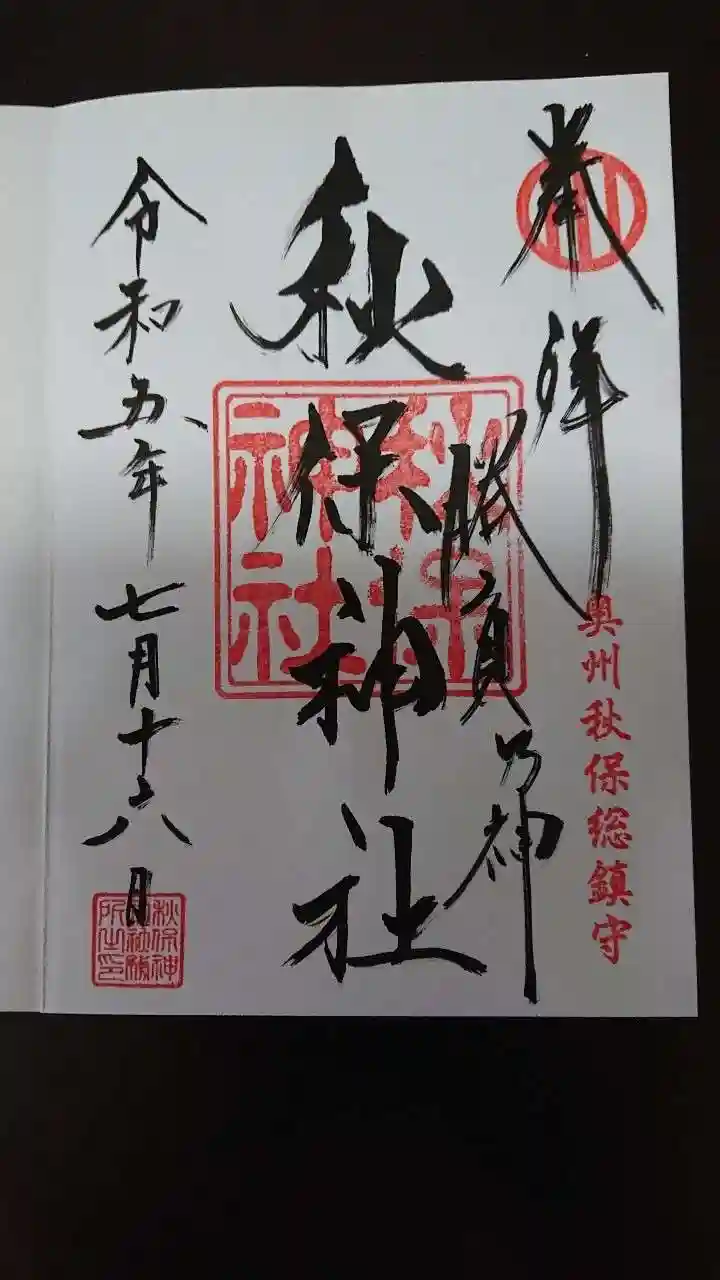 奉拝
奥州秋保総鎮守
勝負乃神
秋保神社
秋保神社
令和五年七月十六日
秋保神社務所之印